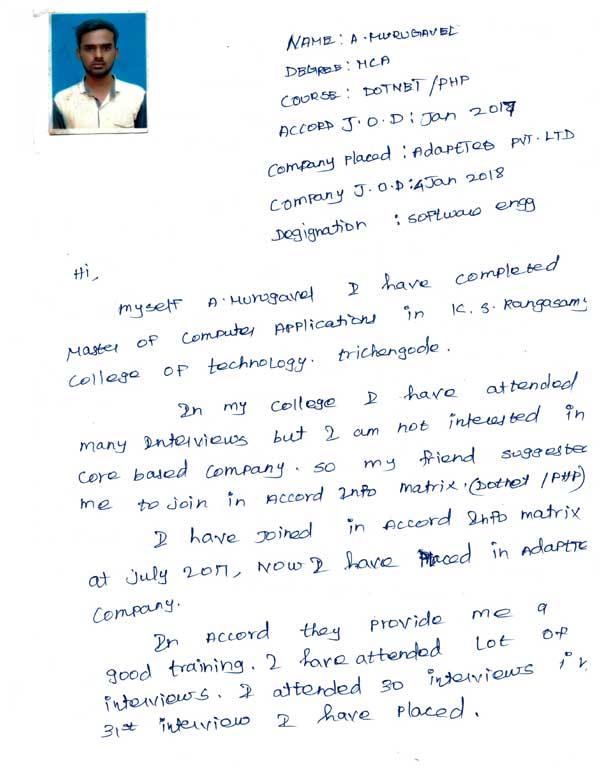 NAME: A. MURUGAVEL
DEGREE: MCA
COURSE: DOTNET/PHP
ACCORD J.O.D: Jan 2017
Company placed: AdapETEG PVT. LTD
Company J.O.D: 4 Jan 2018
Degignation : Software engg
Hi,
myself A. Murugavel I have completed
Master of Computer Applications in K.S. Rangasamy
College of technology. trichengode.
In my college I have attended
many Interviews but I am not interested in
core based company. so my friend suggested
me to join in Accord Info matrix. (Dotnet /PHP)
I have Joined in Accord Info matrix
at July 2017, NOW I have Placed in AdapTTE
Company.
In Accord they provide me a
good training. I have attended Lot of
interviews. I attended 30 interviews in
31st interview I have placed.